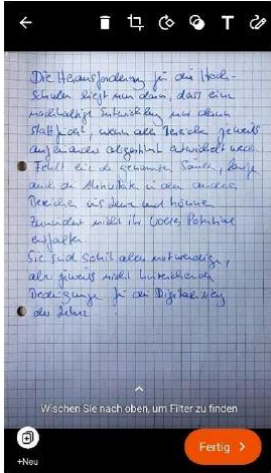 Die Herausforderung für die Hoch-
schulen liegt nun darin, dass eine
nachhaltige Entwicklung nur dann
stattfindet, wenn alle Bereiche jeweils
aufeinander abgestimmt entwickelt werd.
Fehlt eine der genannten Säulen,
auch die Aktivitäten in den anderen
Bereichen ins Leere und können
zumindest nicht ihr volles Potential
entfalten.
Sie sind somit alle notwendige,
aber jeweils nicht hinreichende
Bedingungen für die Digitalisierung
der Lehre.
Wischen Sie nach oben, um Filter zu finden
+Neu
Fertig